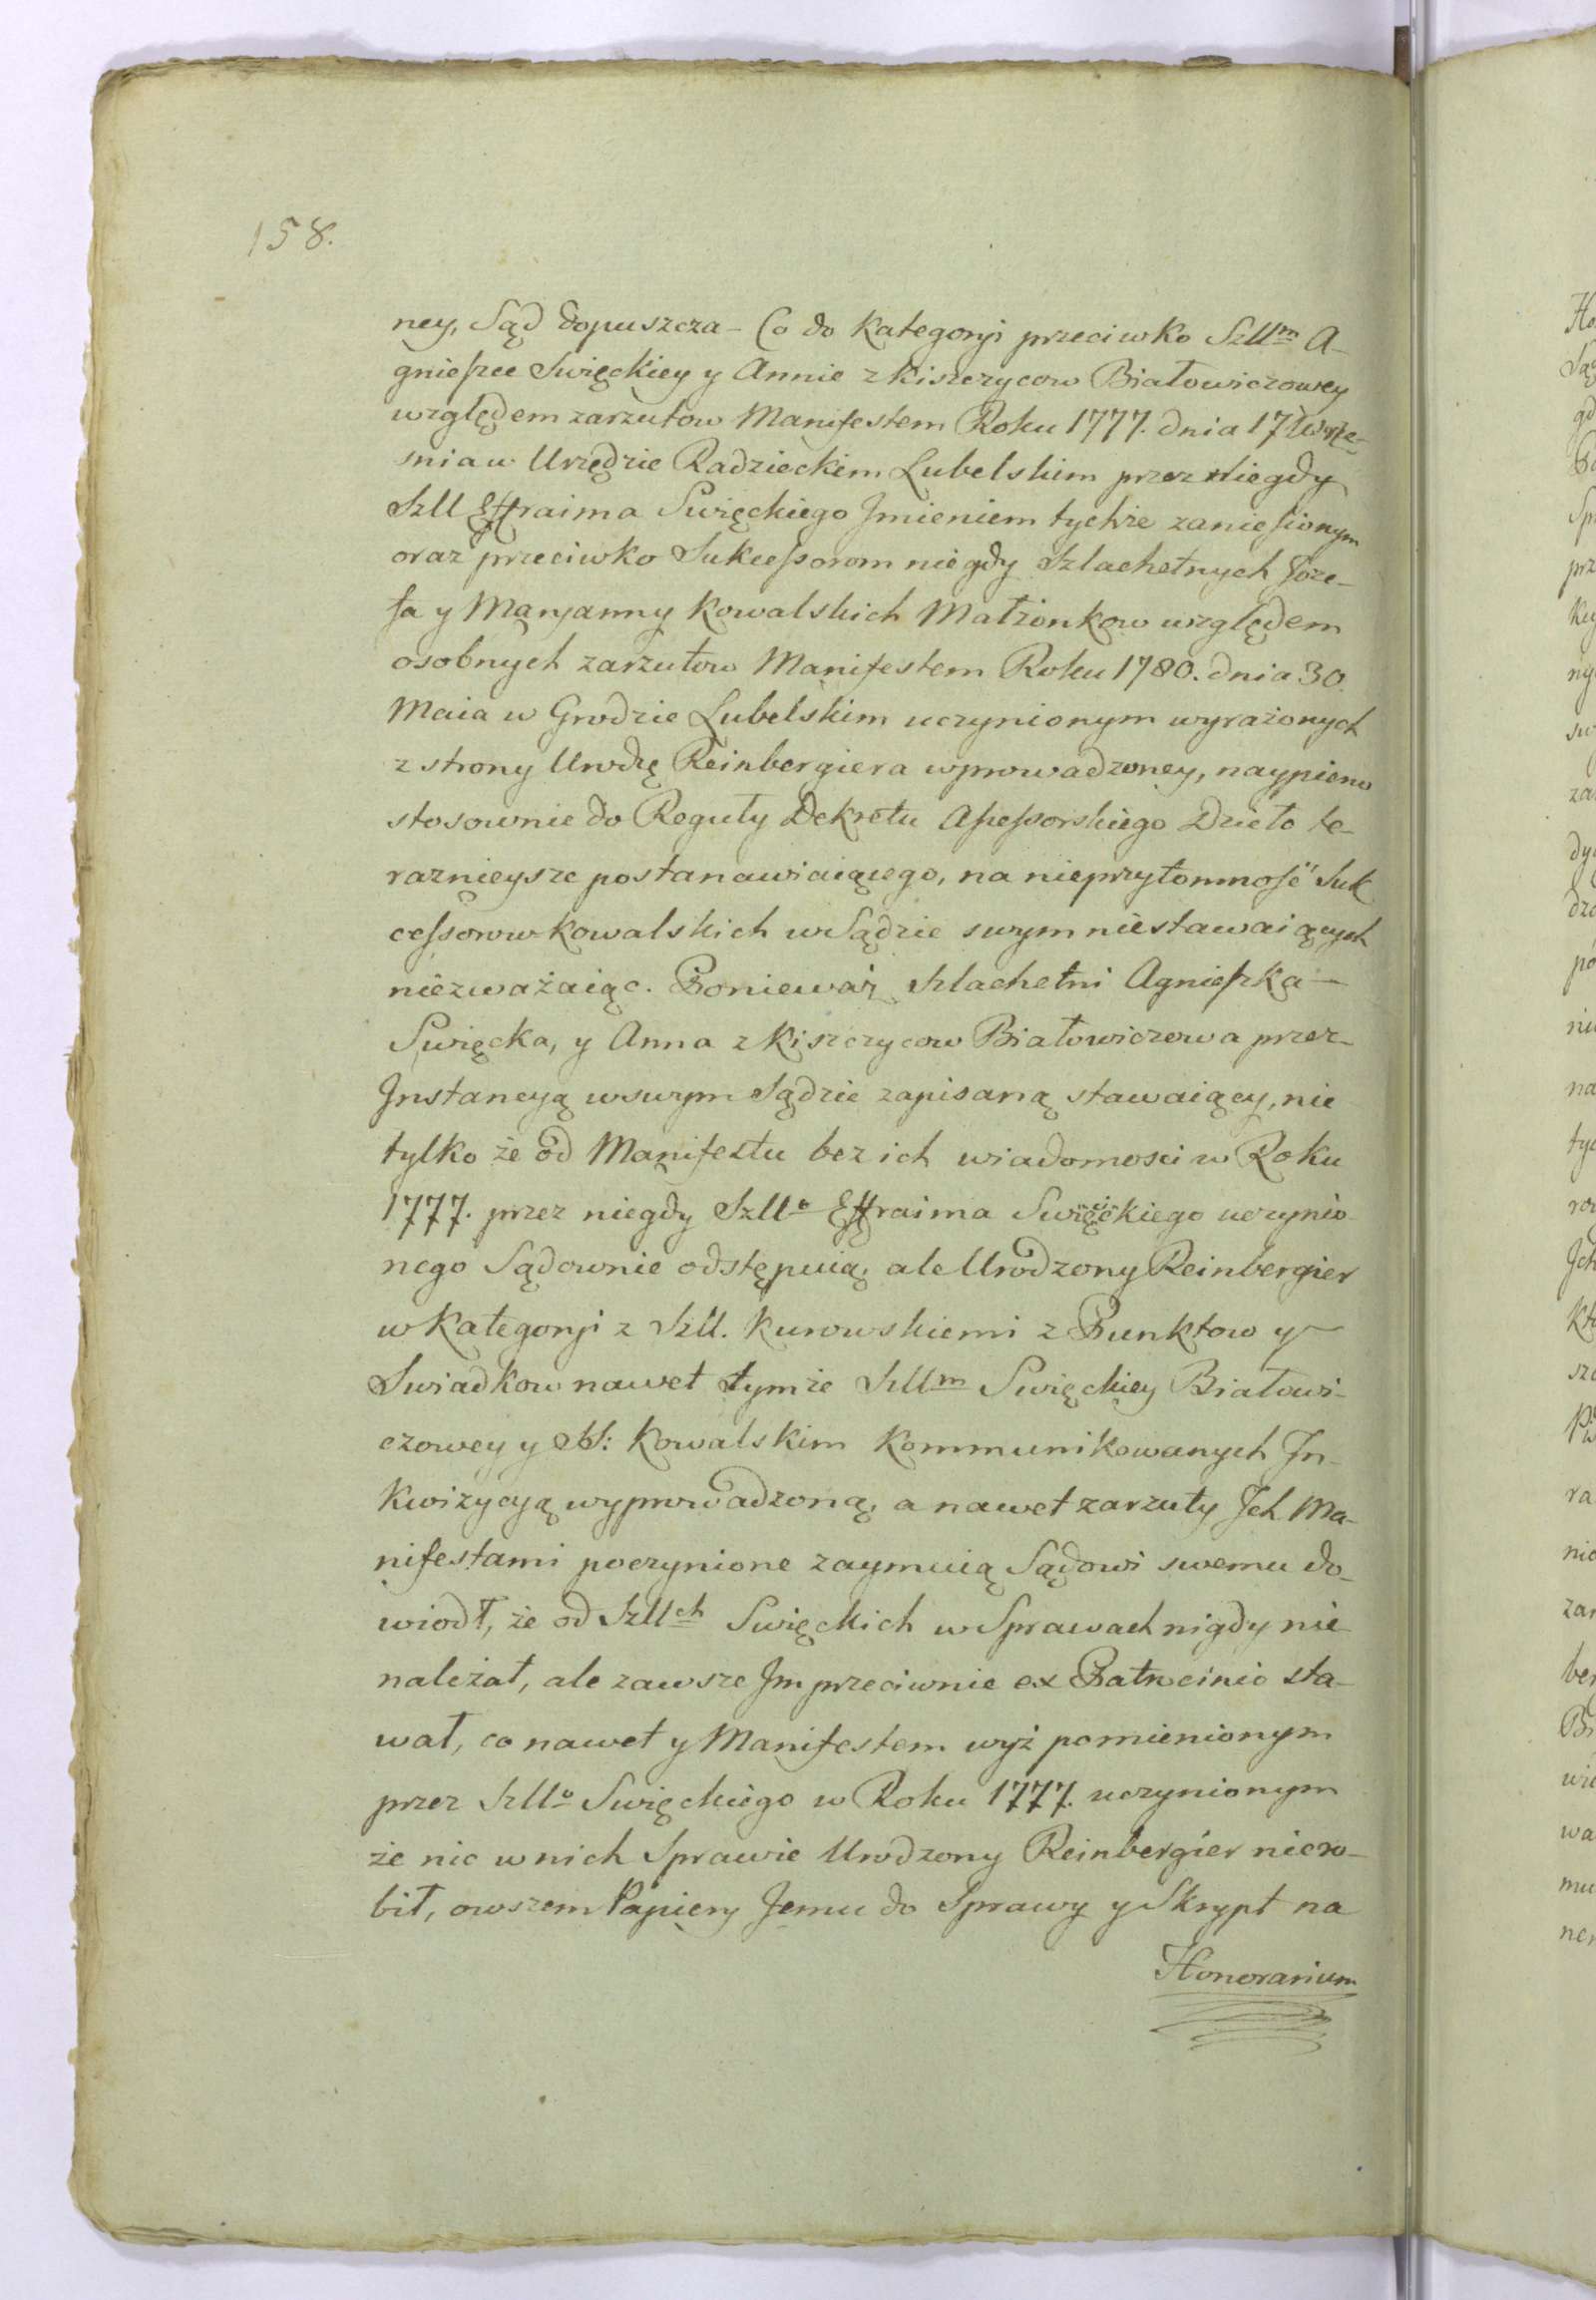 158.
ney, Sąd dopuszcza – Co do Kategoryi przeciwko Szllm A-
gnieszce Swięckiey y Annie z Kiszczycow Białowiczowey
względem zarzutow Manifestem Roku 1777. dnia 17 Wrze-
snia w Urzędzie Radzieckim Lubelskim przez niegdy
Szll Effraima Swięckiego Jmieniem tychże zaniesionym
oraz przeciwko Sukcessorom niegdy Szlachetnych Joze-
fa y Maryanny Kowalskich Małżonkow względem
osobnych zarzutow Manifestem Roku 1780. dnia 30
Maia w Grodzie Lubelskim uczynionym wyrażonych
z strony Urodzę Reinbergiera wprowadzoney, naypierw
stosownie do Reguły Dekretu Assessorskiego Dzieło te-
raznieysze postanawiaiącego, na nieprzytomność Suk
cessorow Kowalskich w Sądzie swym niestawaiących
niezważaiąc. Ponieważ Szlachetni Agnieszka –
Swięcka, y Anna z Kiszczycow Białowiczowa przez
Jnstancyą w swym Sądzie zapisaną stawaiący, nie
tylko że od Manifestu bez ich wiadomosci w Roku
1777. przez niegdy Szllo Effraima Swięckiego uczynio-
nego Sądownie odstępuią, ale Urodzony Reinbergier
w Kategoryi z Szll. Kurowskiemi z Punktow y
Swiadkow nawet tymże Szllm Swięckiey Białowi-
czowey y SS: Kowalskim Kommunikowanych Jn-
kwizycyą wyprowadzoną, a nawet zarzuty Jch Ma-
nifestami poczynione zaymuią Sądowi swemu do-
wiodł, że od Szllch Swięckich w Sprawach nigdy nie
należał, ale zawsze Jm przeciwnie ex Patrocinio sta-
wał, co nawet y Manifestem wyż pomienionym
przez Szllo Swięckiego w Roku 1777. uczynionym
że nic w nich Sprawie Urodzony Reinbergier niero-
bił, owszem Papiery Jemu do Sprawy y Skrypt na
Honorarium